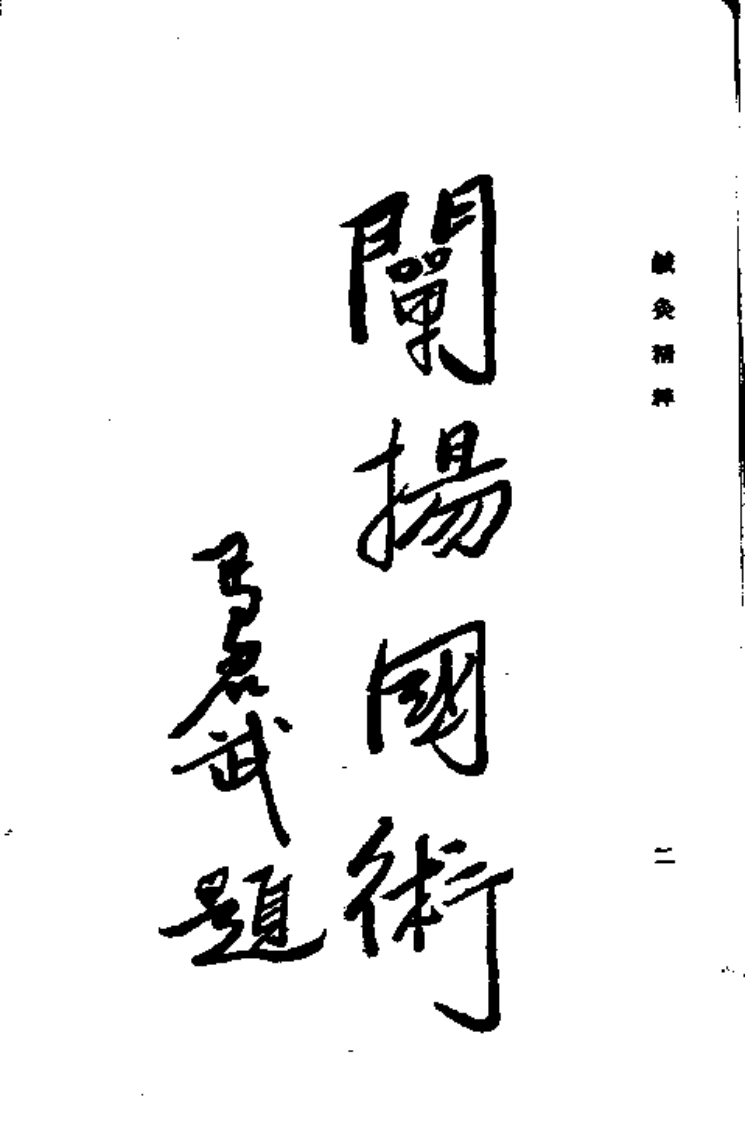 鍼灸精粹
二
闡揚國術
馬君武題